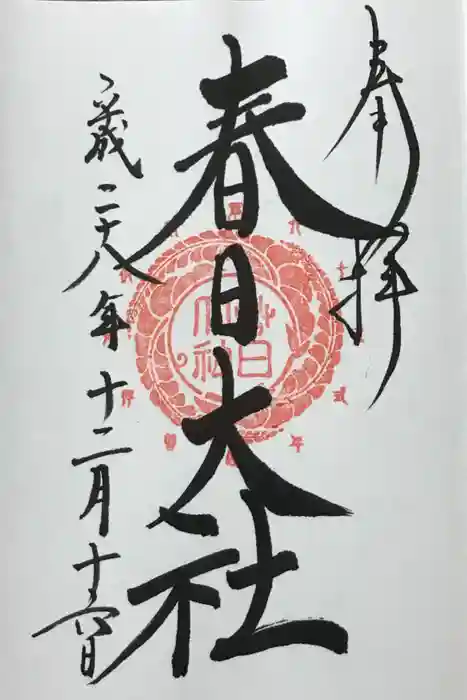 奉拝
春日大社
平成二十八年十二月十六日